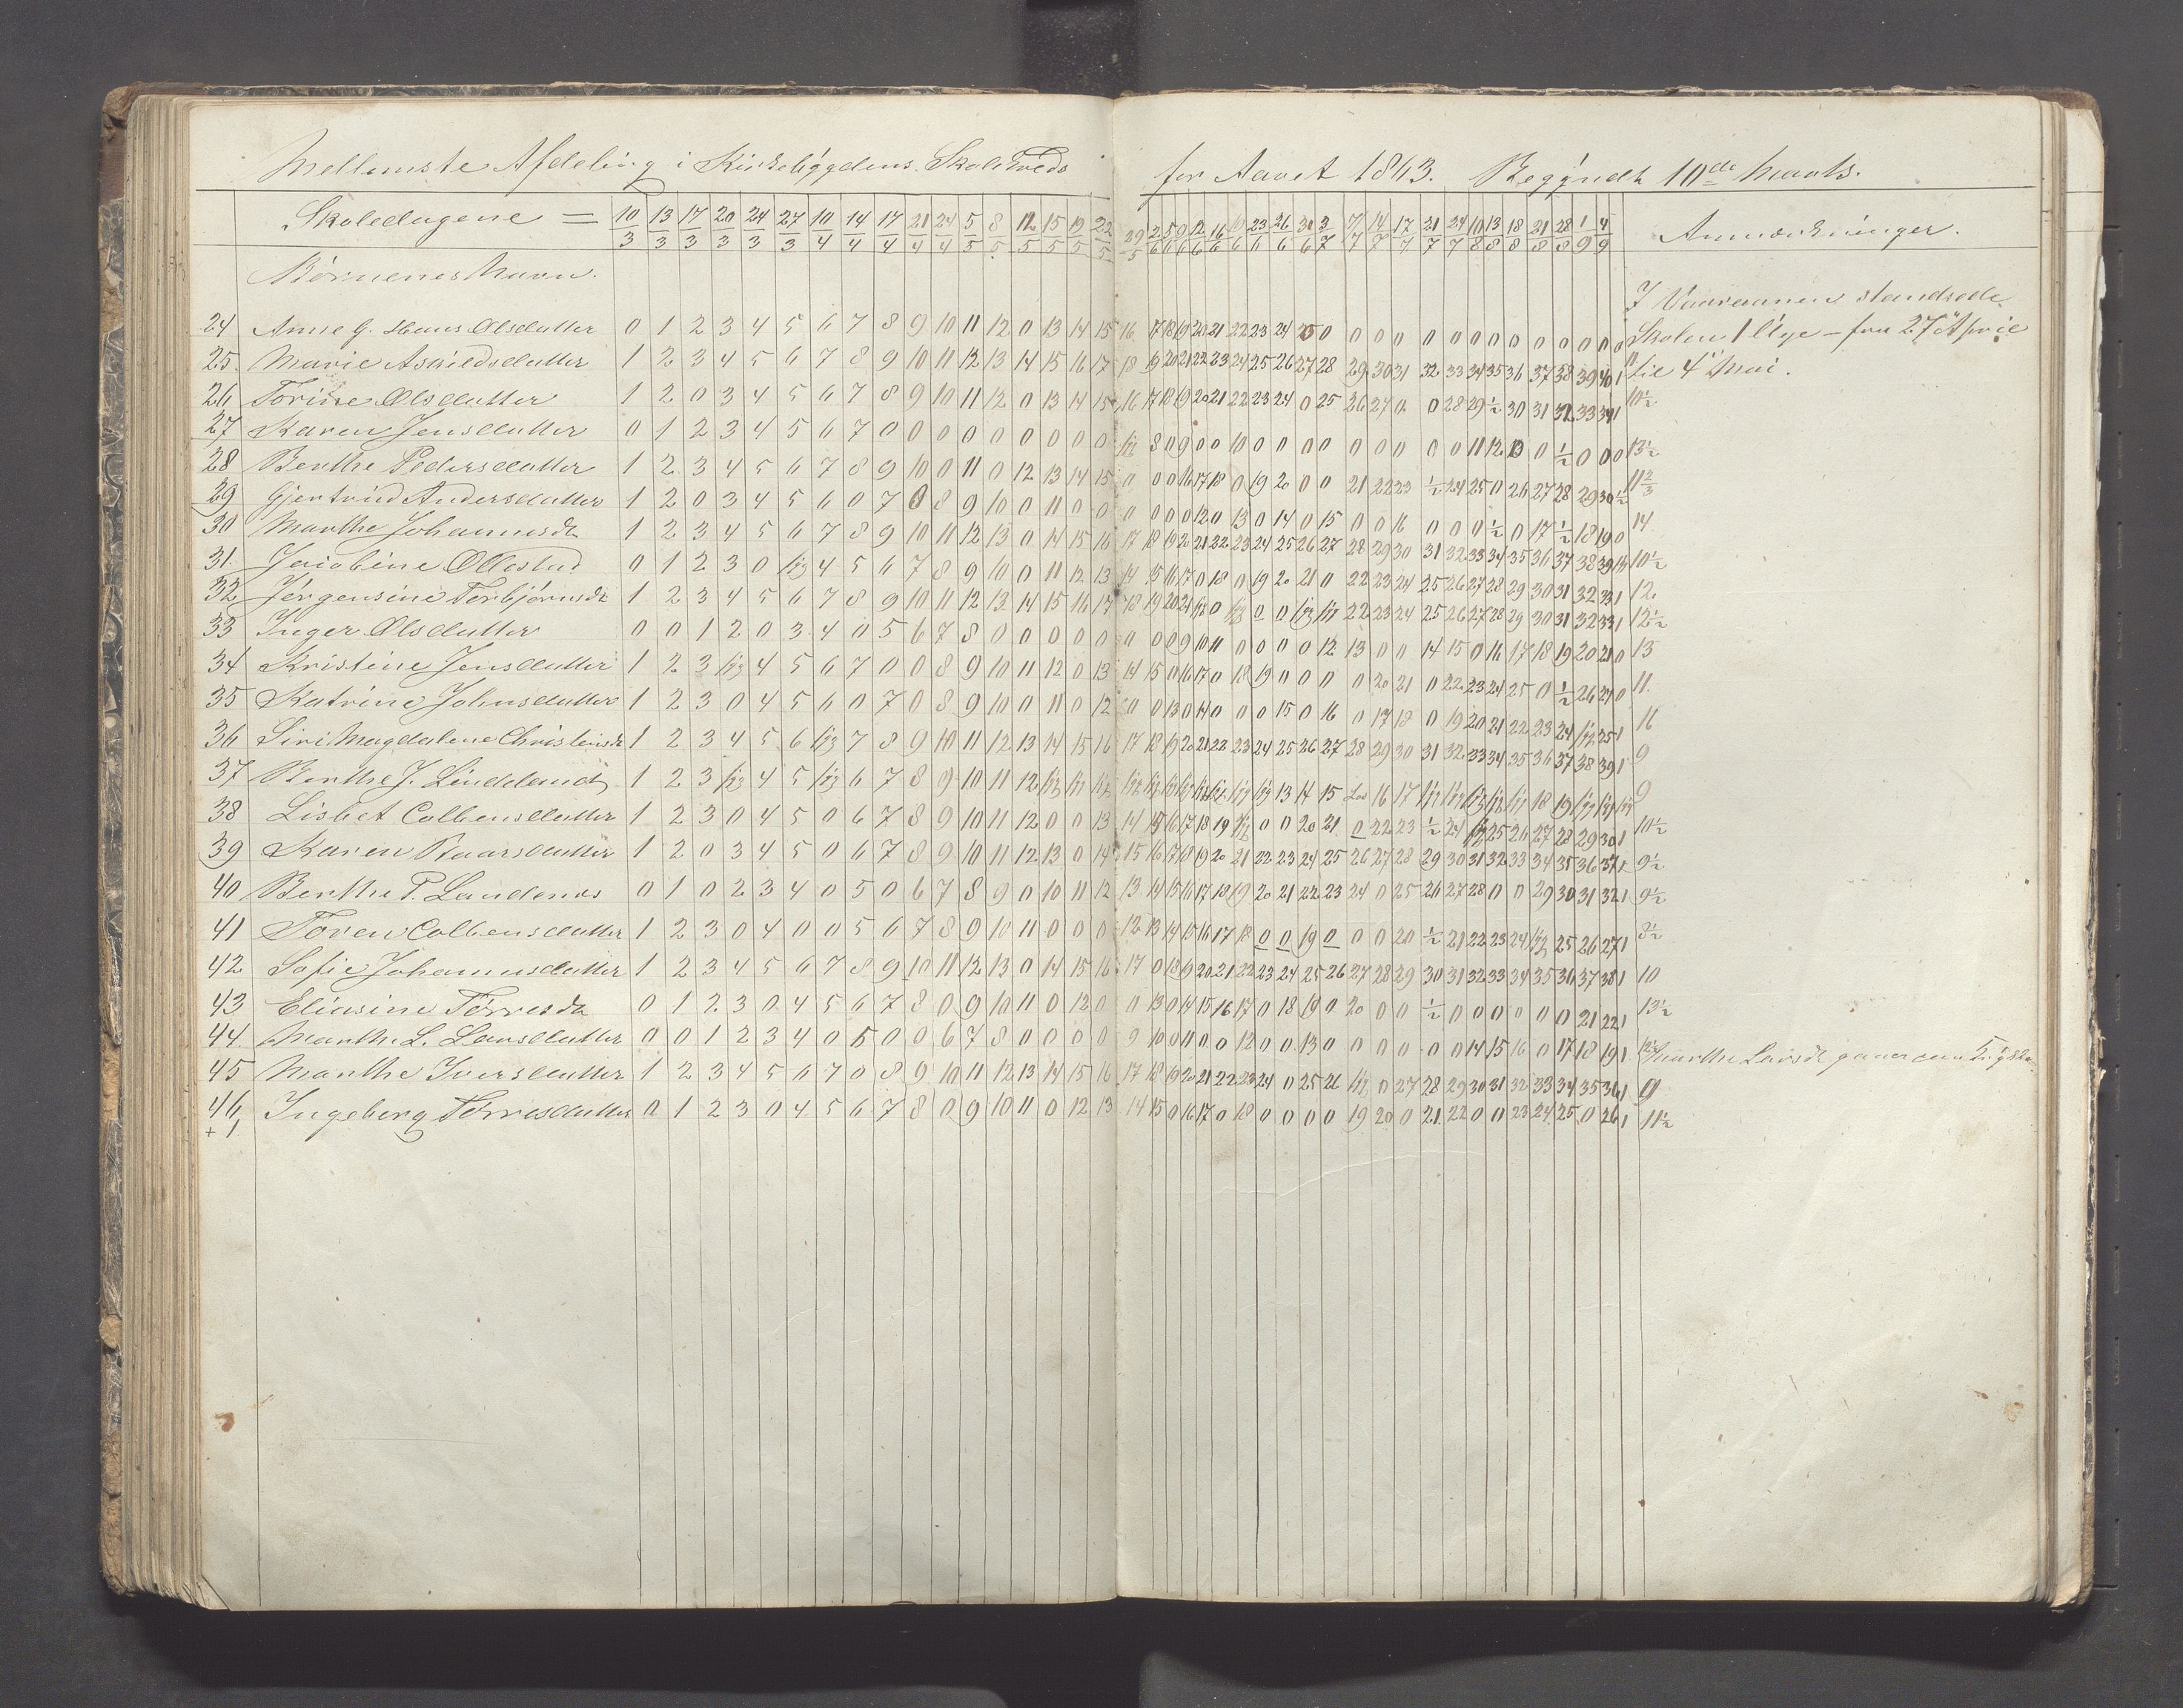 Mellemste Afdeling i Kirkebygdens Skolekreds for Aaret 1863. Begyndt 10de Marts.
Skoledagene = 10/3 13/3 17/3 20/3 24/3 27/3 10/4 14/4 17/4 21/4 24/4 5/5 8/5 12/5 15/5 19/5 22/5 29/5 2/6 5/6 9/6 12/6 16/6 19/6 23/6 26/6 30/6 3/7 7/7 14/7 17/7 21/7 24/7 10/8 13/8 18/8 21/8 28/8 1/9 4/9 Anmærkninger.
Børnenes Navn.
I Vaaraanen standsede
24 Anne G. Hans Olsdatter 0 1 2 3 4 5 6 7 8 9 10 11 12 0 13 14 15 16 17 18 19 20 21 22 23 24 0 0 0 0 0 0 0 0 0 0 0 0 0 0
Skolen 1 Uge – fra 27 April
25. Marie Askildsdatter 1 2 3 4 5 6 7 8 9 10 11 12 13 14 15 16 17 18 19 20 21 22 23 24 25 26 27 28 29 30 31 32 33 34 35 36 37 38 39 40
til 4 Mai.
26 Torine Olsdatter 1 2 0 3 4 5 6 7 8 9 10 11 12 0 13 14 15 16 17 18 19 20 21 22 23 24 0 25 26 27 0 0 28 29 ½ 30 31 32 33 34 10½
27 Karen Jensdatter 0 1 2 3 4 5 6 7 0 0 0 0 0 0 0 0 0 8 0 9 0 0 10 0 0 0 0 0 0 0 0 0 11 12 13 0 ½ 0 0 13½
28 Berthe Pedersdatter 1 2 3 4 5 6 7 8 9 10 0 11 0 12 13 14 15 0 0 0 16 17 18 0 19 20 0 0 21 22 23 ½ 24 25 0 26 27 28 29 30 11⅔
29 Gjertrud Andersdatter 1 2 0 3 4 5 6 0 7 0 8 9 10 0 11 0 0 0 0 0 0 12 0 13 0 14 0 15 0 0 16 0 0 0 ½ 0 17 ½ 18 19 0 14
30 Marthe Johannesdt 1 2 3 4 5 6 7 8 9 10 11 12 13 0 14 15 16 17 18 19 20 21 22 23 24 25 26 27 28 29 30 31 32 33 34 35 36 37 38 39 10½
31. Jacobine Ollestad 0 1 2 3 0 4 5 6 7 8 9 10 0 11 12 13 14 15 16 17 0 18 0 19 20 21 0 22 23 24 25 26 27 28 29 30 31 32 33 12
32 Jørgensine Torbjørnsdt 1 2 3 4 5 6 7 8 9 10 11 12 13 14 15 16 17 18 19 20 21 0 0 0 22 23 24 25 26 27 28 29 30 31 32 33 12½
33 Inger Olsdatter 0 0 1 2 0 3 4 0 5 6 7 8 0 0 0 0 0 0 0 0 9 10 11 0 0 0 0 12 13 0 0 14 15 0 16 17 18 19 20 21 0 13
34 Kristine Jensdatter 1 2 3 4 5 6 7 0 0 8 9 10 11 12 0 13 14 15 0 16 17 0 18 19 0 0 0 0 20 21 0 22 23 24 25 0 ½ 26 27 0 11.
35 Katrine Johnsdatter 1 2 3 0 4 5 6 0 7 0 8 9 10 0 11 0 12 0 0 13 0 14 0 0 0 15 0 16 0 17 18 0 19 20 21 22 23 24 25 16
36 Siri Magdalene Christensdt 1 2 3 4 5 6 7 8 9 10 11 12 13 14 15 16 17 18 19 20 21 22 23 24 25 26 27 28 29 30 31 32 33 34 35 36 37 38 39 9
37 Berthe J. Lindeland 1 2 3 4 5 6 7 8 9 10 11 12 13 14 15 16 17 18 19 9
38 Lisbet Colbensdatter 1 2 3 0 4 5 0 6 7 8 9 10 11 12 0 0 13 14 15 16 17 18 19 0 0 20 21 0 22 23 ½ 24 25 26 27 28 29 30 10½
39 Karen Roarsdatter 1 2 0 3 4 5 0 6 7 8 9 10 11 12 13 0 14 15 16 17 18 19 20 21 22 23 24 25 26 27 28 29 30 31 32 33 34 35 36 37 9½
40 Berthe P. Landenos 0 1 0 2 3 4 0 5 0 6 7 8 9 0 10 11 12 13 14 15 16 17 18 19 20 21 22 23 24 0 25 26 27 28 0 0 29 30 31 32 9½
41 Toren Colbensdatter 1 2 3 0 4 0 0 5 6 7 8 9 10 11 0 0 0 12 13 14 15 16 17 18 0 0 19 0 0 0 20 ½ 21 22 23 24 25 26 27 8½
42 Sofie Johannesdatter 1 2 3 4 5 6 7 8 9 10 11 12 13 0 14 15 16 17 0 18 19 20 21 22 23 24 25 26 27 28 29 30 31 32 33 34 35 36 37 38 10
43 Eliasine Tørresdt 0 1 2 3 0 4 5 6 7 8 0 9 10 11 0 12 0 0 13 0 14 15 16 17 0 18 19 0 20 0 0 ½ 0 0 0 0 0 0 21 22 13½
44. Marthe L. Larsdatter 0 0 1 2 3 4 0 5 0 0 6 7 8 0 0 0 0 9 10 0 11 0 0 12 0 0 13 0 0 0 0 0 0 14 15 16 0 17 18 19 Marthe Larsdt
45 Marthe Iversdatter 1 2 3 4 5 6 7 0 8 9 10 11 12 13 14 15 16 17 18 19 20 21 22 23 24 0 25 26 0 27 28 29 30 31 32 33 34 35 36 9
46 Ingeborg Tørresdatter 0 1 2 3 0 4 5 6 7 8 0 9 10 11 0 12 13 14 15 0 16 17 0 18 0 0 0 0 19 20 0 21 22 0 0 23 24 25 0 26 11½
+ 1